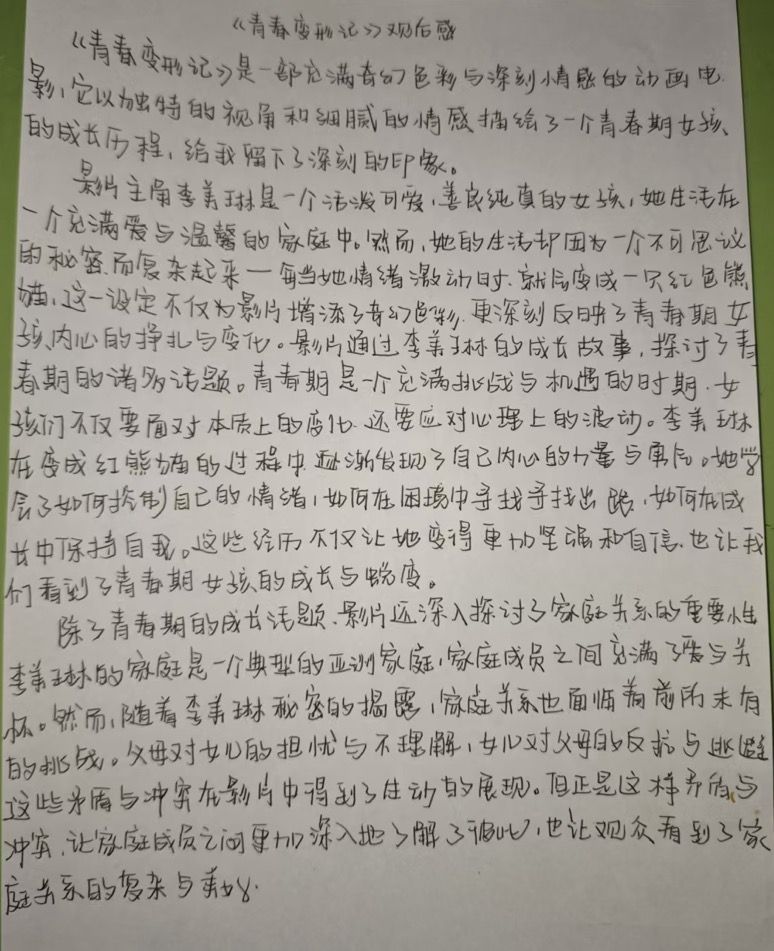 《青春变形记》观后感
《青春变形记》是一部充满奇幻色彩与深刻情感的动画电
影，它以为独特的视角和细腻的情感描绘了一个青春期女孩
的成长历程，给我留下了深刻的印象。
影片主角李美琳是一个活泼可爱，善良纯真的女孩，她生活在
一个充满爱与温馨的家庭中。然而，她的生活却因为一个不可思议
的秘密而复杂起来一每当她情绪激动时，就会变成一只红色熊
猫，这一设定不仅为影片增添了奇幻色彩，更深刻反映了青春期女
孩内心的挣扎与变化。影片通过李美琳的成长故事，探讨了青
春期的诸多话题。青春期是一个充满挑战与机遇的时期，女
孩们不仅要面对本质上的变化，还要应对心理上的波动。李美琳
在变成红熊猫的过程中，逐渐发现了自己内心的力量与勇气。她学
会了如何控制自己的情绪，如何在困境中寻找寻找出路，如何在成
长中保持自我。这些经历不仅让她变得更加坚强和自信，也让我
们看到了青春期女孩的成长与蜕变。
除了青春期的成长话题，影片还深入探讨了家庭关系的重要性
李美琳的家庭是一个典型的亚洲家庭，家庭成员之间充满了爱与关
怀。然而，随着李美琳秘密的揭露，家庭关系也面临着前所未有
的挑战。父母对女儿的担忧与不理解，女儿对父母的反抗与逃避
这些矛盾与冲突在影片中得到了生动的展现。但正是这样矛盾与
冲突，让家庭成员之间更加深入地了解了彼此，也让观众看到了家
庭关系的复杂与美好。